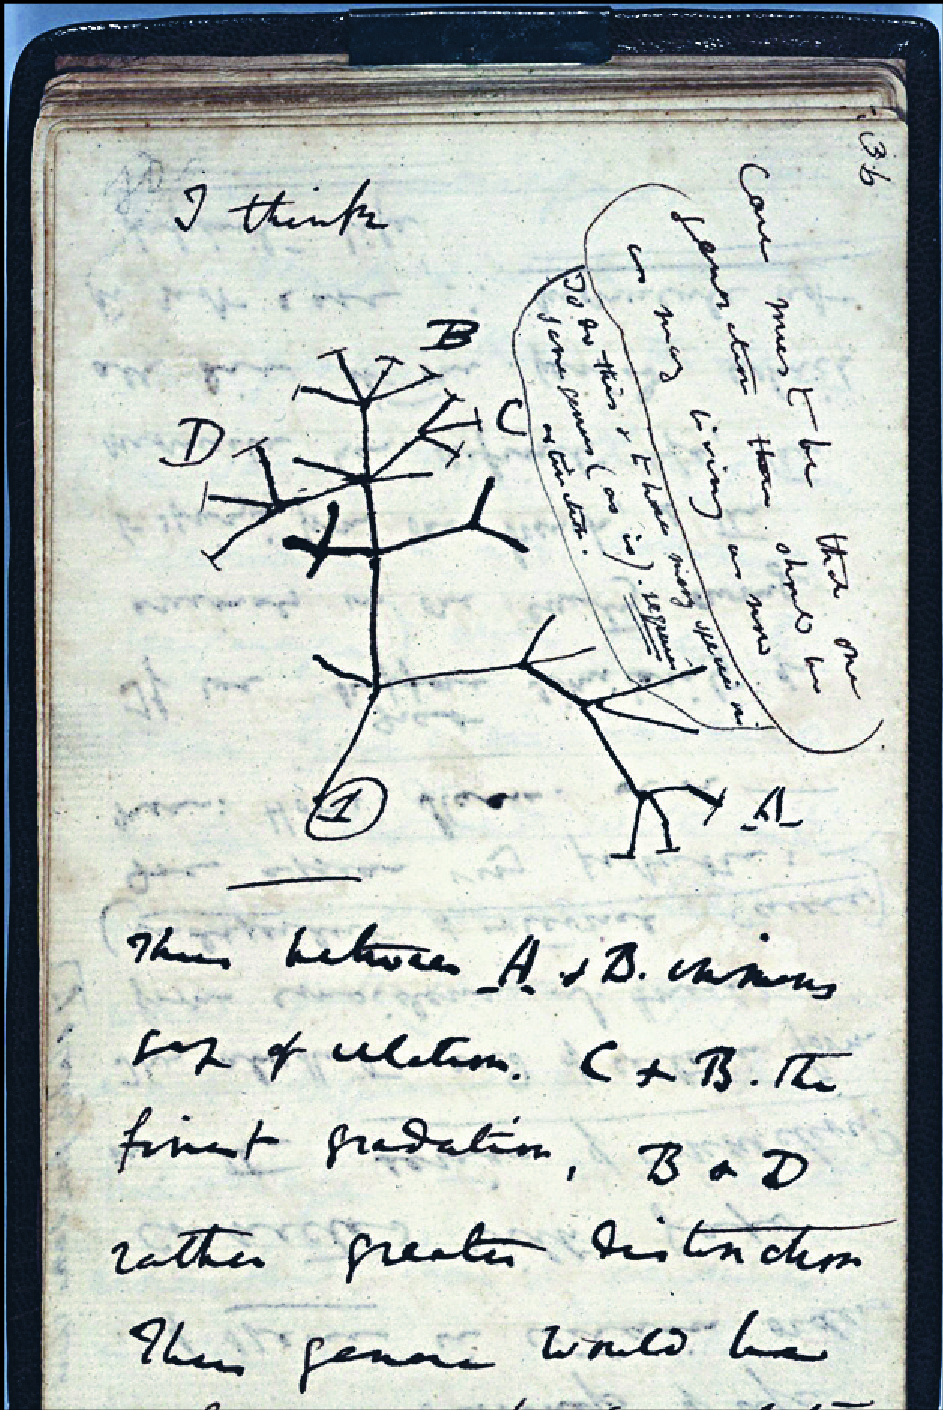 36
I think
Case must be that one
generation then should be
as many living as now
To do this & to have many species in
same genus (as is). requires
extinction.
B
C
D
A
1
Thus between A & B. immens
gap of relation. C & B. the
finest gradation, B & D
rather greater distinction
Thus genera would be